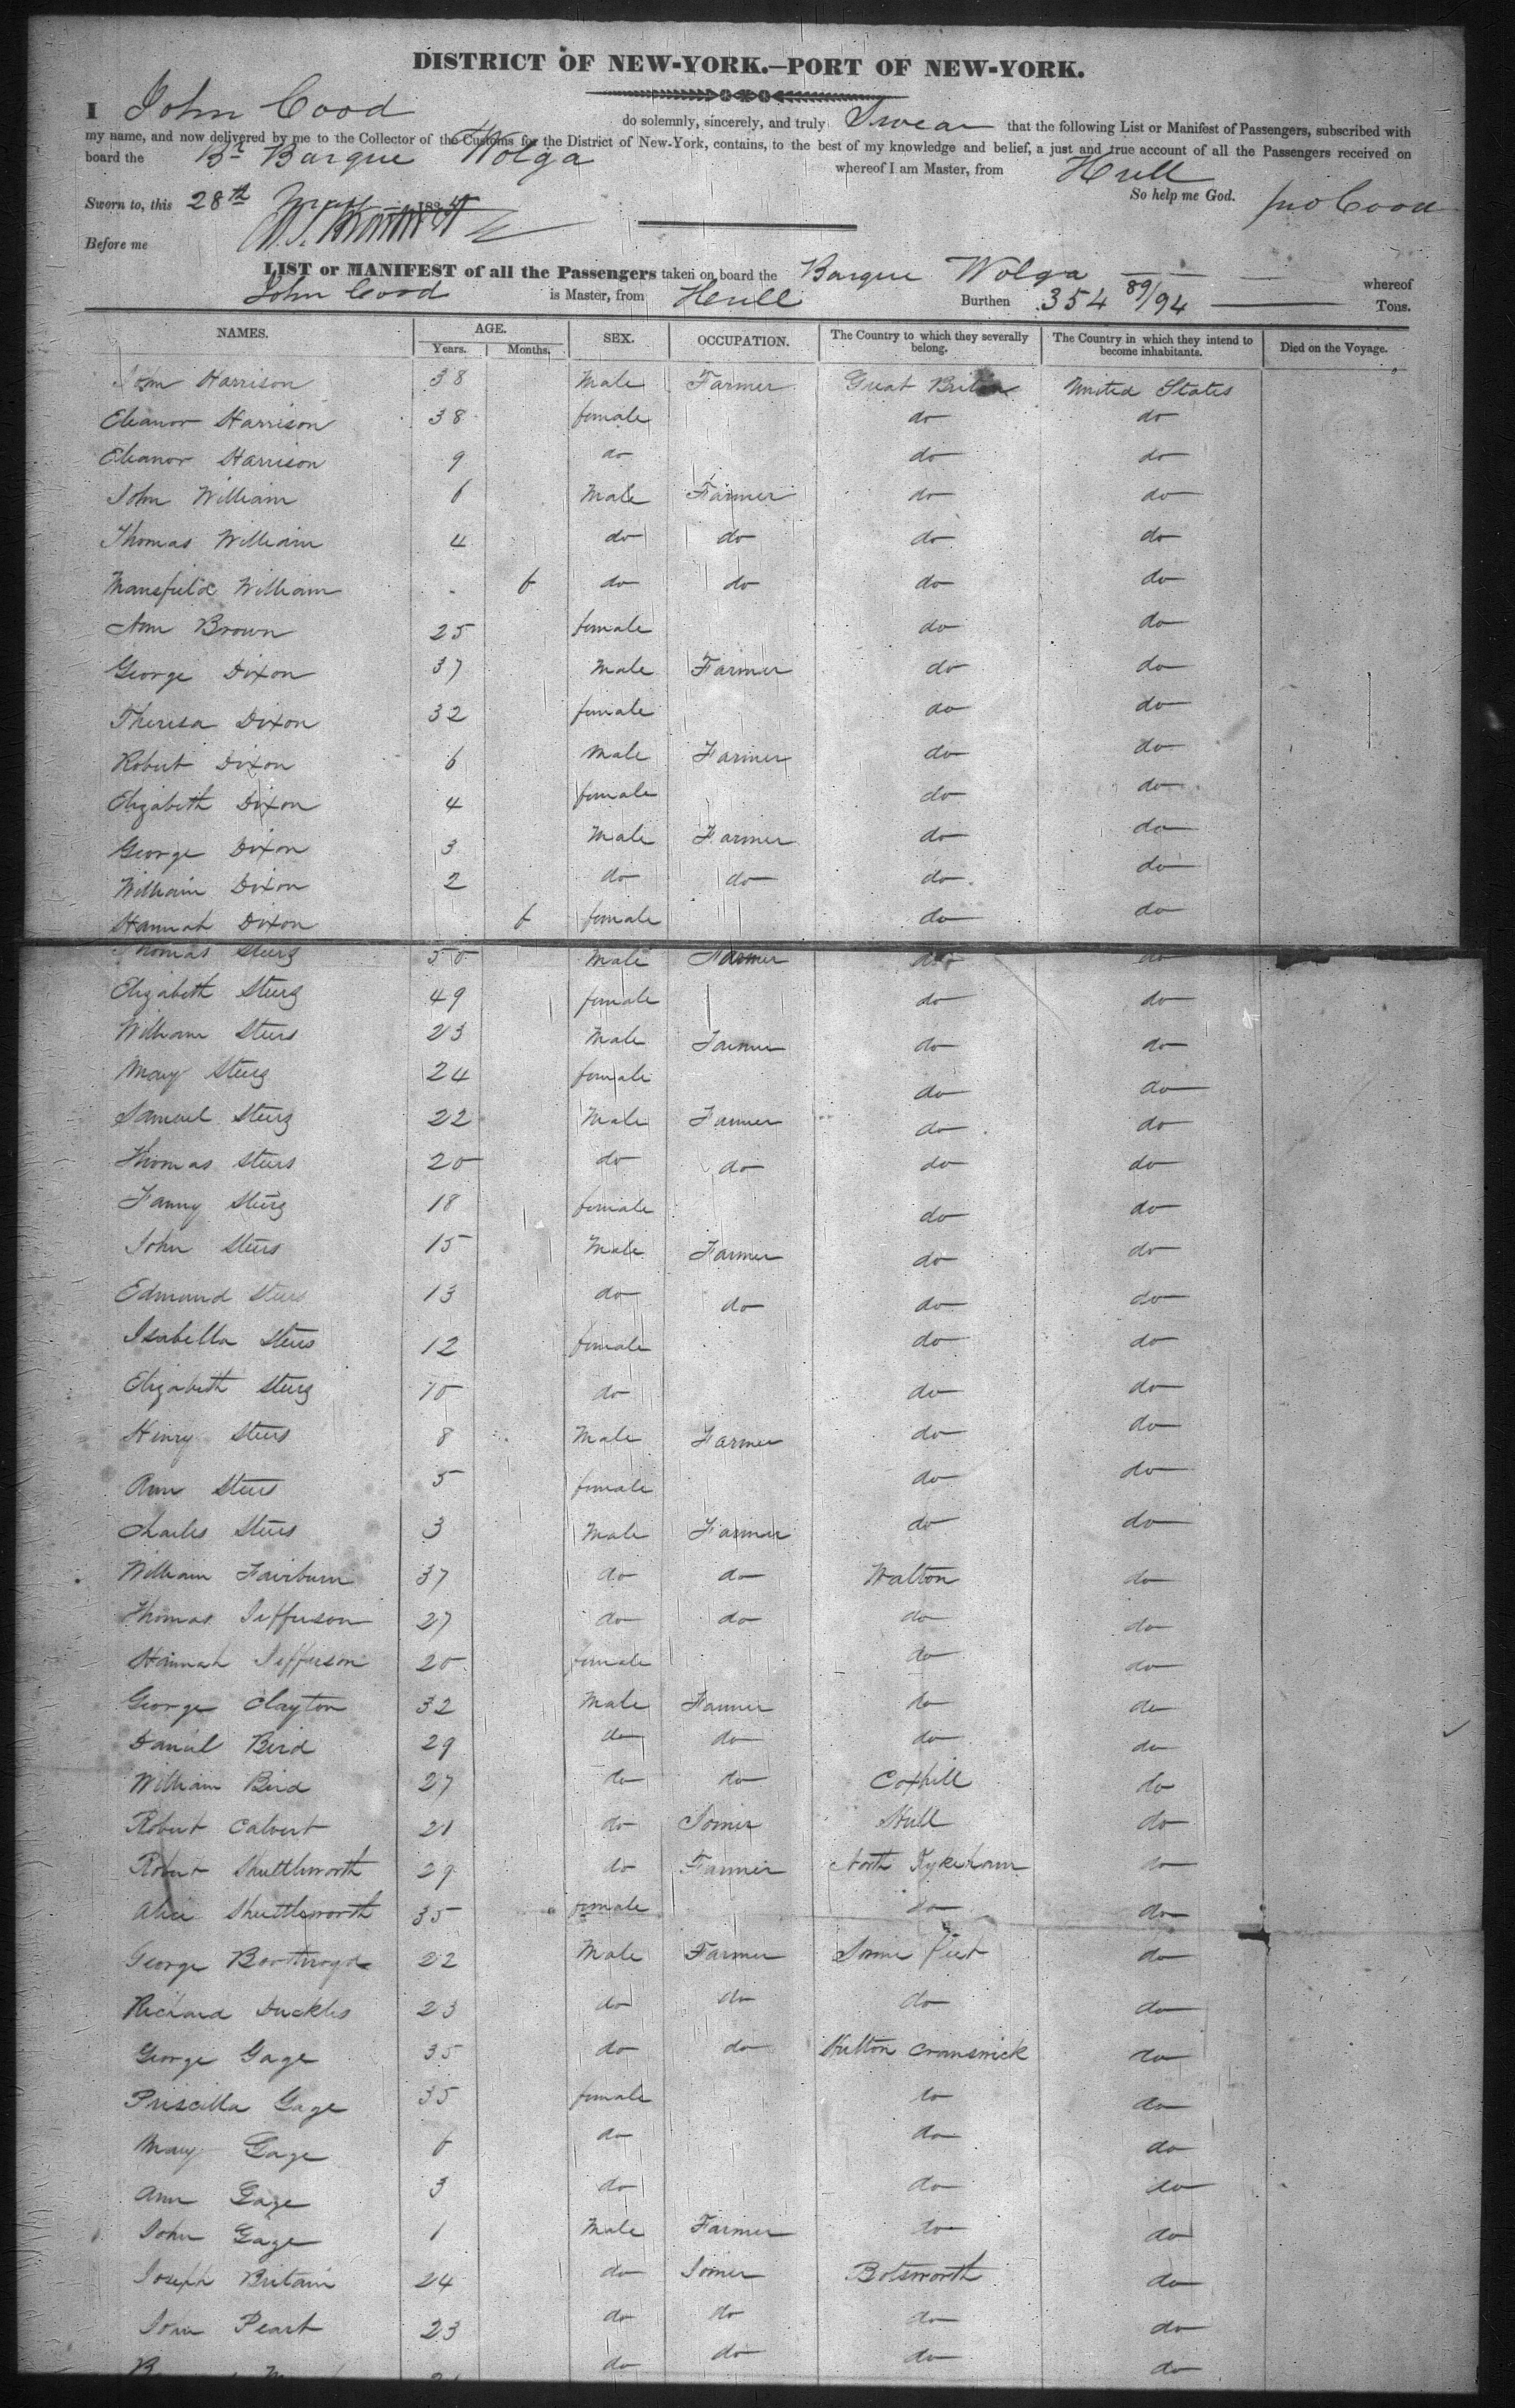 DISTRICT OF NEW-YORK.—PORT OF NEW-YORK.
I John Good do solemnly, sincerely, and truly Swear that the following List or Manifest of Passengers, subscribed with
my name, and now delivered by me to the Collector of the Customs for the District of New-York, contains, to the best of my knowledge and belief, a just and true account of all the Passengers received on
board the Br Barque Wolga whereof I am Master, from Hull
Sworn to, this 28th 183 So help me God. Jno Good
Before me
LIST or MANIFEST of all the Passengers taken on board the Barque Wolga whereof
John Good is Master, from Hull Burthen 354 89/94 Tons.
NAMES. AGE. SEX. OCCUPATION. The Country to which they severally belong. The Country in which they intend to become inhabitants. Died on the Voyage.
Years. Months.
John Harrison 38 Male Farmer Great Britain United States
Eleanor Harrison 38 female do do
Eleanor Harrison 9 do do do
John William 6 Male Farmer do do
Thomas William 4 do do do do
Mansfield William 6 do do do do
Ann Brown 25 female do do
George Dixon 37 Male Farmer do do
Theresa Dixon 32 female do do
Robert Dixon 6 Male Farmer do do
Elizabeth Dixon 4 female do do
George Dixon 3 Male Farmer do do
William Dixon 2 do do do do
Hannah Dixon 6 female do do
Thomas Steers 50 Male Farmer do do
Elizabeth Steers 49 female do do
William Steers 23 Male Farmer do do
Mary Steers 24 female do do
Samuel Steers 22 Male Farmer do do
Thomas Steers 20 do do do do
Fanny Steers 18 female do do
John Steers 15 Male Farmer do do
Edmund Steers 13 do do do do
Isabella Steers 12 female do do
Elizabeth Steers 10 do do do
Henry Steers 8 Male Farmer do do
Ann Steers 5 female do do
Charles Steers 3 Male Farmer do do
William Fairburn 37 do do Walton do
Thomas Jefferson 27 do do do do
Hannah Jefferson 20 female do do
George Clayton 32 Male Farmer do do
Daniel Bird 29 do do do do
William Bird 27 do do Coxhill do
Robert Calvert 21 do Joiner Hull do
Robert Shuttleworth 29 do Farmer North Kykeham do
Alice Shuttleworth 35 female do do
George Boothroyd 22 Male Farmer do
Richard Duckles 23 do do do do
George Gage 35 do do Hutton Cranswick do
Priscilla Gage 35 female do do
Mary Gage 6 do do do
Ann Gage 3 do do do
John Gage 1 Male Farmer do do
Joseph Britain 24 do Joiner Botsworth do
John Peart 23 do do do do
do do do do